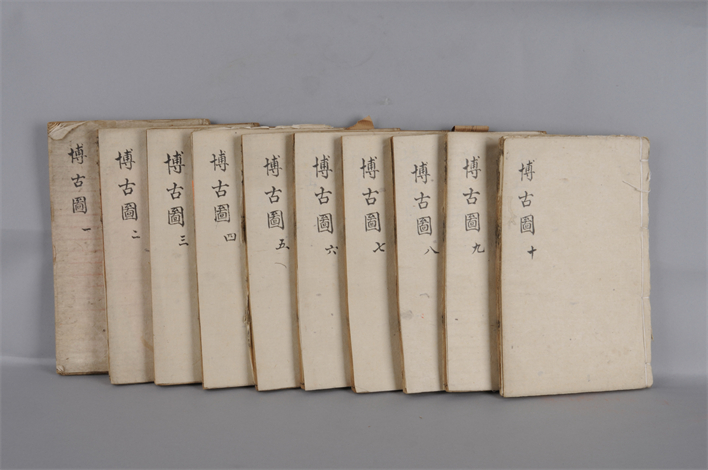 博古圖 一
博古圖 二
博古圖 三
博古圖 四
博古圖 五
博古圖 六
博古圖 七
博古圖 八
博古圖 九
博古圖 十